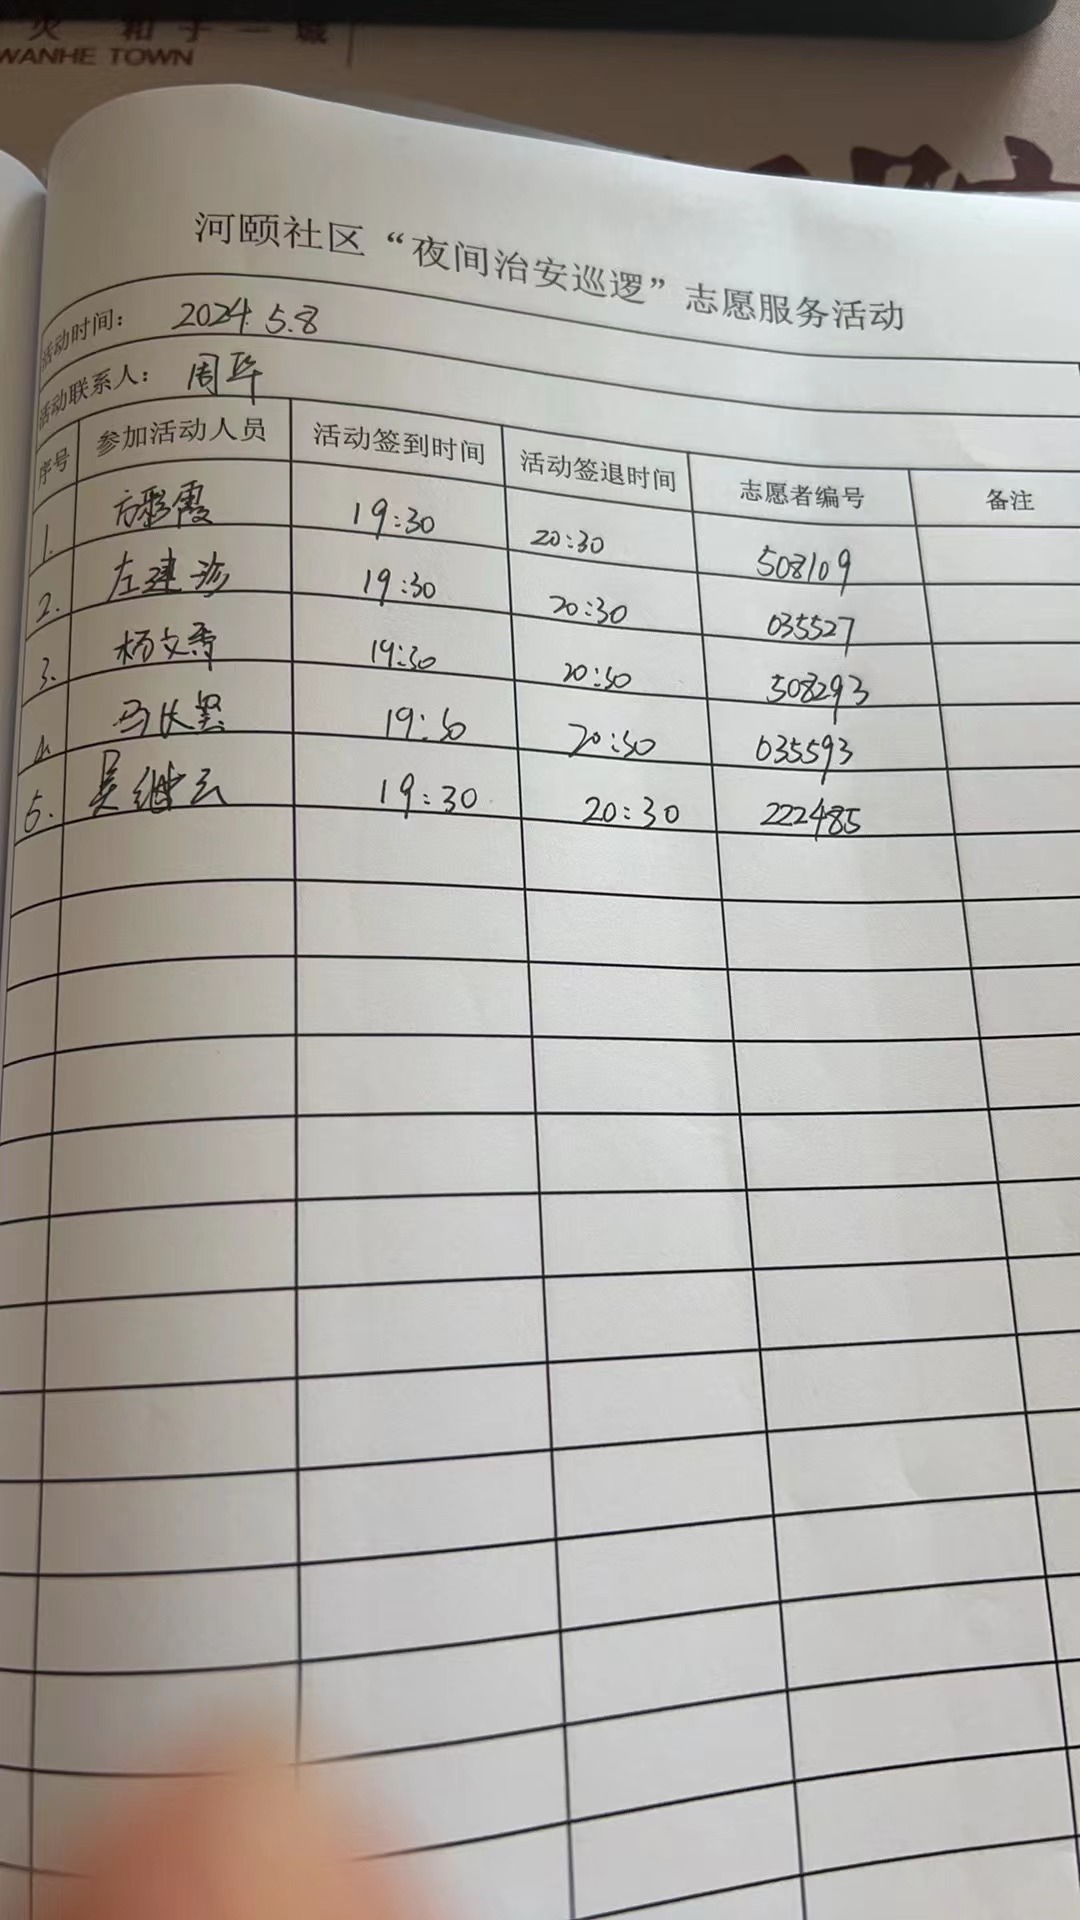 WANHE TOWN
河颐社区“夜间治安巡逻”志愿服务活动
活动时间： 2024.5.8
活动联系人： 周华
序号 参加活动人员 活动签到时间 活动签退时间 志愿者编号 备注
1. 方彩霞 19:30 20:30 508109
2. 左建珍 19:30 20:30 035527
3. 杨文秀 19:30 20:30 508293
4. 19:30 20:30 035593
5. 吴继云 19:30 20:30 222485